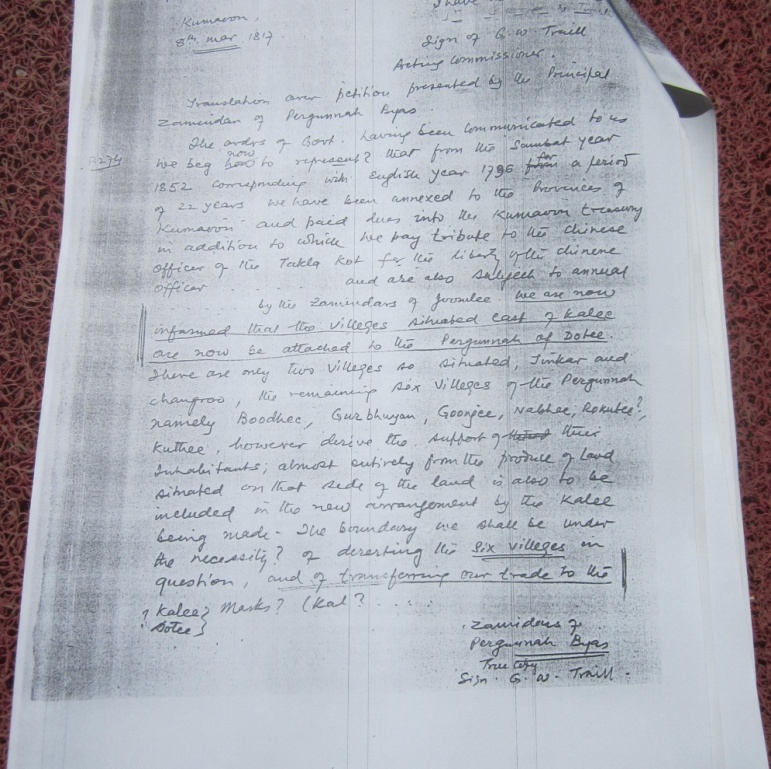 Kumaon,
8th Mar 1817
Sign of G. W. Traill
Acting Commissioner.
Translation over petition presented by the Principal
Zamindar of Pergunnah Byas
The orders of Govt. having been communicated to us
we beg now to represent? that from the Sambat year
1852 corresponding with English year 1796 for a period
of 22 years we have been annexed to the Provinces of
Kumaon and paid dues into the Kumaon treasury
in addition to which we pay tribute to the Chinese
officer of the Takla Kot for the liberty of the Chinene
officer .......... and are also subject to annual
.......... by the Zamindars of Joomlee we are now
informed that the villeges situated east of Kalee
are now be attached to the Pergunnah of Dotee.
There are only two villeges so situated, Tinkar and
changroo, the remaining six villeges of the Pergunnah
namely Boodhee, Gurbhuyan, Goonjee, Nabhee, Rokutee?,
Kuthee, however derive the support of their
Inhabitants; almost entirely from the produce of land
situated on that side of the land is also to be
included in the new arrangement by the Kalee
being made - The boundary we shall be under
the necessity? of deserting the six villeges in
question, and of transferring our trade to the
? Kalee? Marks? (Kal? . . . .
? Dotee}
Zamidars of
Pergunnah Byas
True Copy
Sign. G. W. Traill.